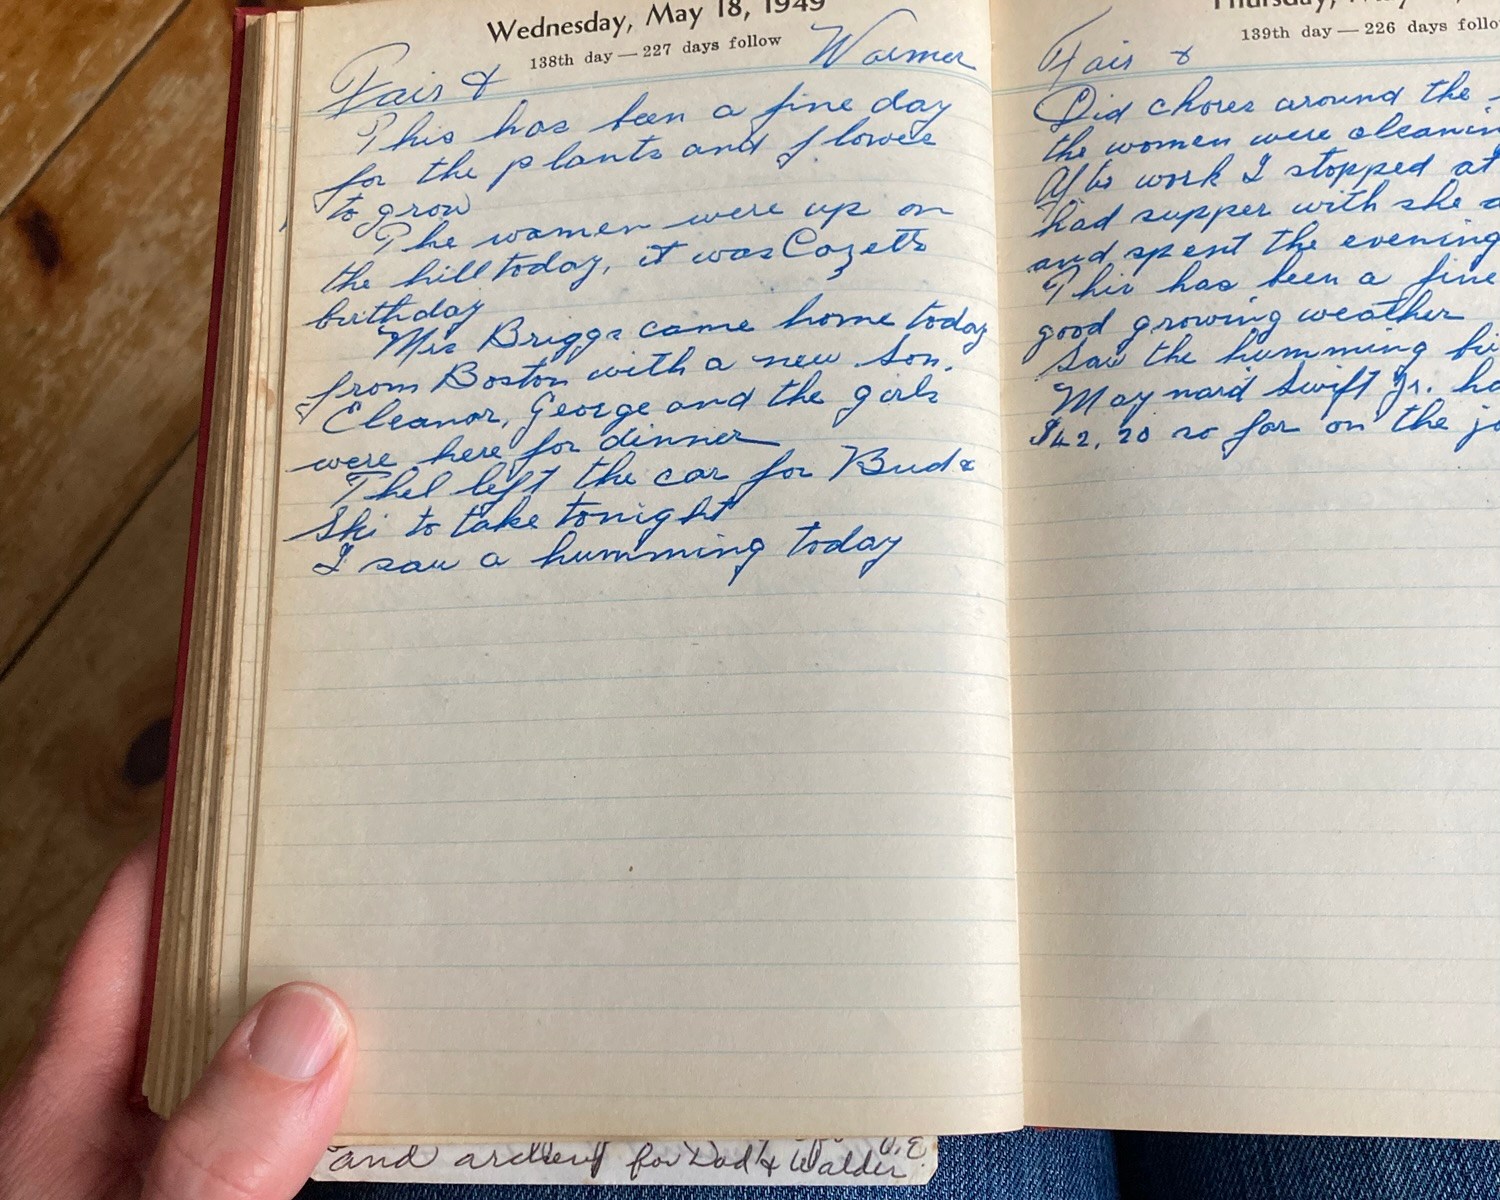 Wednesday, May 18, 1949
138th day — 227 days follow
Fair & Warmer
This has been a fine day
for the plants and flowers
to grow
The women were up on
the hill today, it was Cozetts
birthday
Mrs Briggs came home today
from Boston with a new son.
Eleanor, George and the girls
were here for dinner
Thel left the car for Bud &
Ski to take tonight
I saw a humming today
139th day — 226 days
Fair &
Did chores around the
the women were
work I stopped at
had supper with she
and spent the evening
This has been a fine
good growing weather
Saw the humming
Maynard Swift Jr.
$42.20 so far on the
and for Dad & Walder